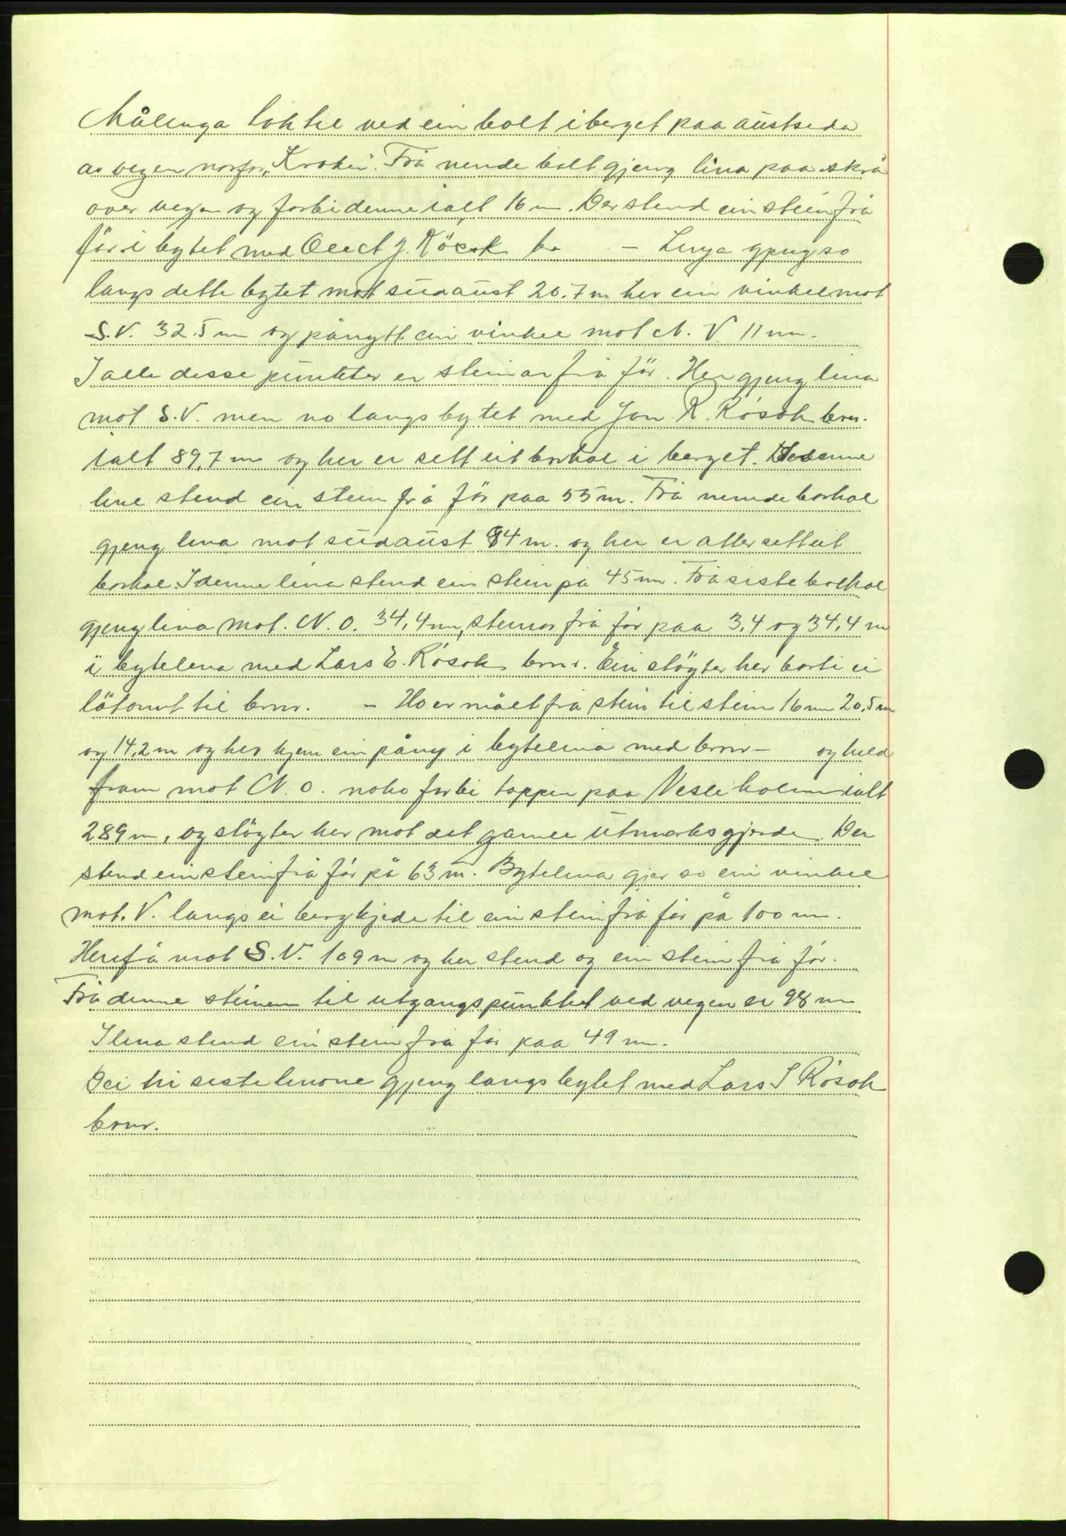 Målinga tok til ved ein bolt i berget paa austsida
av vegen norfr. "Kroken". Frå nemde bolt gjeng lina paa skrå
over vegen og forbi denne ialt 16 m. Der stend ein stein frå
før i bytet med J. Røsok br – Linja gjeng so
langs dette bytet mot sudaust 20.7 m her ein vinkel mot
S.V. 32.5 m og pånytt ein vinkel mot N. V 11 m.
I alle disse punkter er steinar frå før. Her gjeng lina
mot S.V. men no langs bytet med Jon R. Røsok brnr.
ialt 89,7 m og her er sett eit borhol i berget. I denne
line stend ein stein frå før paa 55 m. Frå nemde borhol
gjeng lina mot sudaust 84 m. og her er atter sett eit
borhol. I denne lina stend ein stein på 45 m. Frå siste borhol
gjeng lina mot. N. O. 34,4 m, steinar frå før paa 3,4 og 34,4 m
i bytelina med Lars E. Røsok brnr. Ein støyter her borti ei
til brnr. – Ho er målt frå stein til stein 16 m 20,5 m
og 14,2 m og her kjem ein påny i bytelina med brnr – og held
fram mot N. O. noko forbi toppen paa Vesleholen ialt
289 m, og støyter her mot det gamle utmarksgjerde. Der
stend ein stein frå før på 63 m. Bytelina gjer so ein vinkel
mot. V. langs ei bergkjede til ein stein frå før på 100 m.
Herifrå mot S.V. 109 m og her stend og ein stein frå før.
Frå denne steinen til utgangspunktet ved vegen er 98 m
I lina stend ein stein frå før paa 49 m.
Dei tri siste linone gjeng langs bytet med Lars S Røsok
brnr.